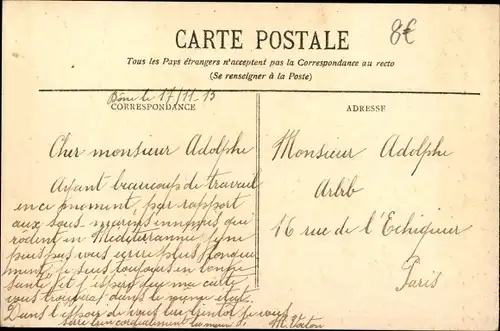 8€
CARTE POSTALE
Tous les Pays étrangers n'acceptent pas la Correspondance au recto
(Se renseigner à la Poste)
Bône le 17/11-15
CORRESPONDANCE
Cher monsieur Adolphe
Ayant beaucoup de travail
en ce moment, par rapport
aux sous-marins ennemis qui
rodent en Méditerrannée, je ne
puis pas vous écrire plus longue
ment, je suis toujours en bonne
santé et j'espère que ma carte
vous trouvera dans le même état.
Dans l'espoir de vous lire bientôt je vous
serre bien cordialement la main
ADRESSE
Monsieur Adolphe
Arbib
16 rue de l'Echiquier
Paris